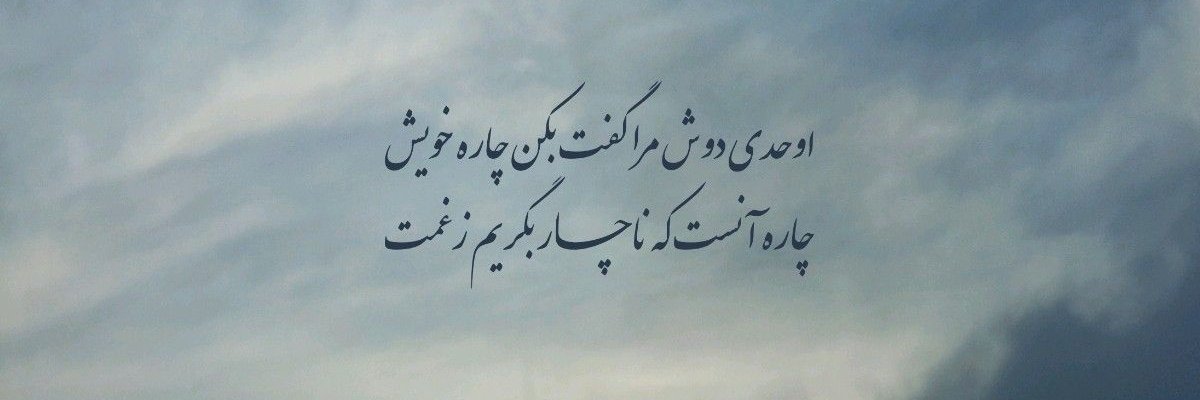 اوحدی دوش مرا گفت بکن چاره خویش
چاره آنست که ناچار بگریم ز غمت